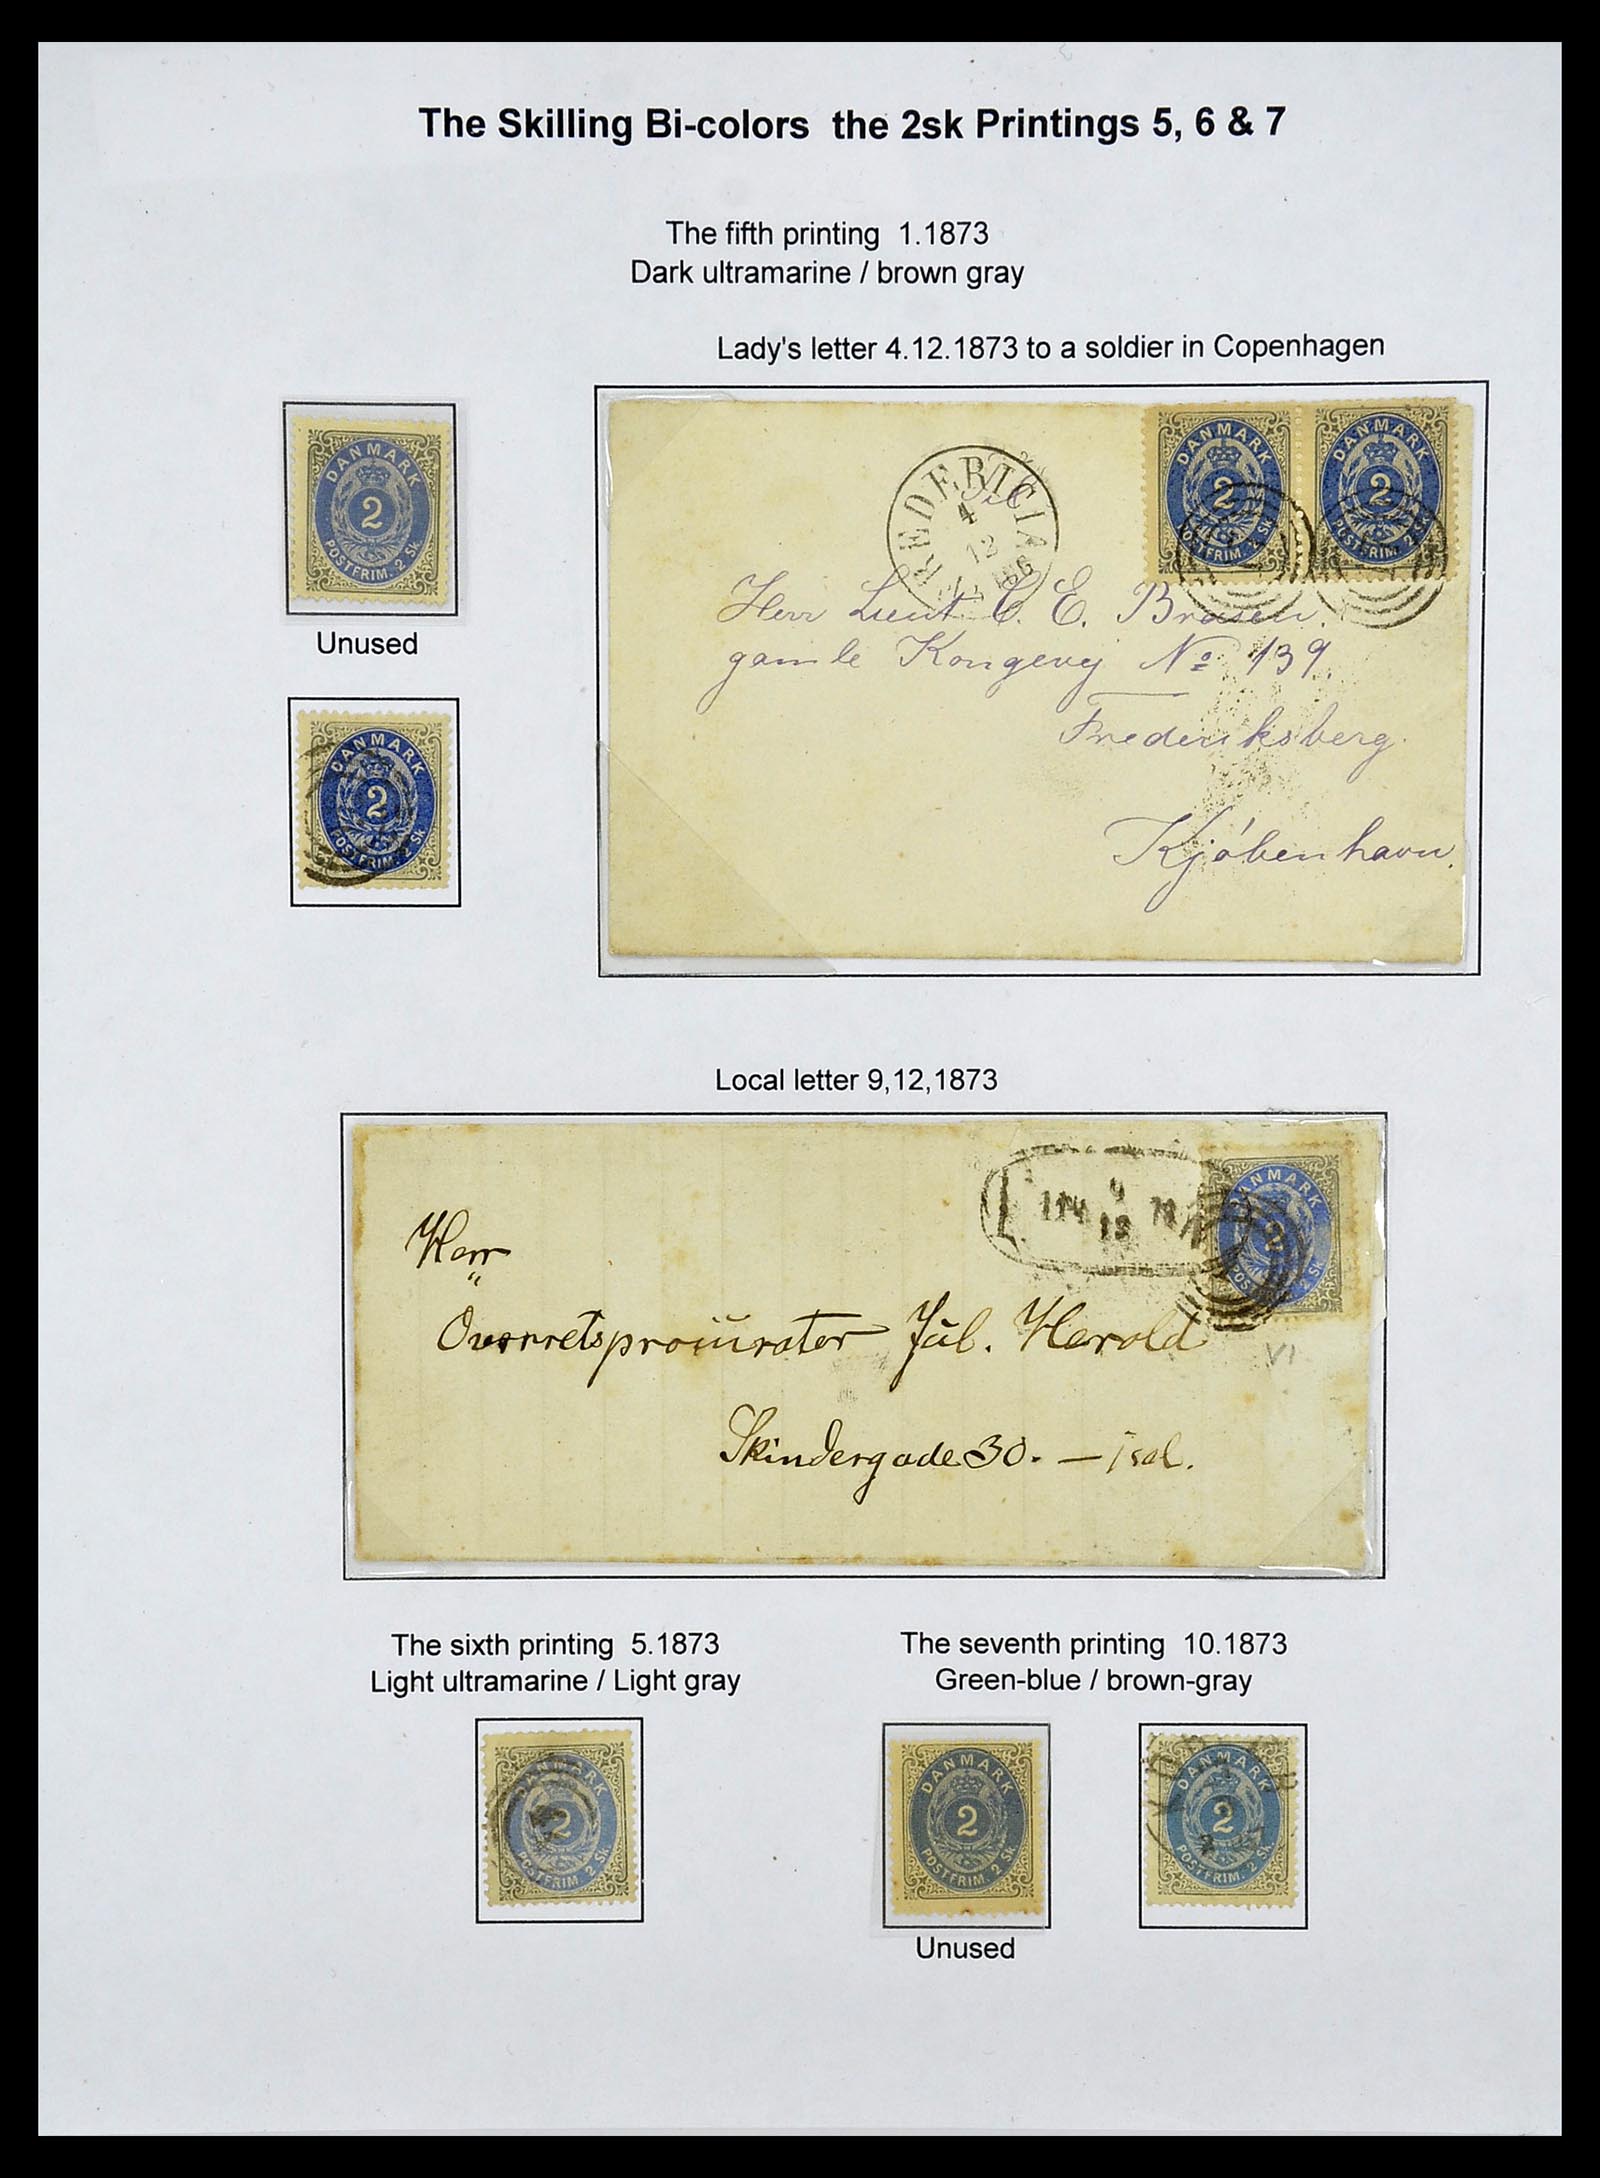 The Skilling Bi-colors the 2sk Printings 5, 6 & 7
The fifth printing 1.1873
Dark ultramarine / brown gray
Lady's letter 4.12.1873 to a soldier in Copenhagen
DANMARK
2
POSTFRIM. 2 SK
Unused
DANMARK
2
POSTFRIM. 2 SK
FREDERICIA
4
12
Til
DANMARK
2
POSTFRIM. 2 SK
DANMARK
2
POSTFRIM. 2 SK
Herr Lieut C. E. Brasen.
gamle Kongevej No 139.
Frederiksberg.
Kjøbenhavn.
Local letter 9,12,1873
DANMARK
2
POSTFRIM. 2 SK
Herr
Overretsprocurator Jul. Herold
Skindergade 30. — isal.
VI
The sixth printing 5.1873
Light ultramarine / Light gray
DANMARK
2
POSTFRIM. 2 SK
The seventh printing 10.1873
Green-blue / brown-gray
DANMARK
2
POSTFRIM. 2 SK
Unused
DANMARK
2
POSTFRIM. 2 SK